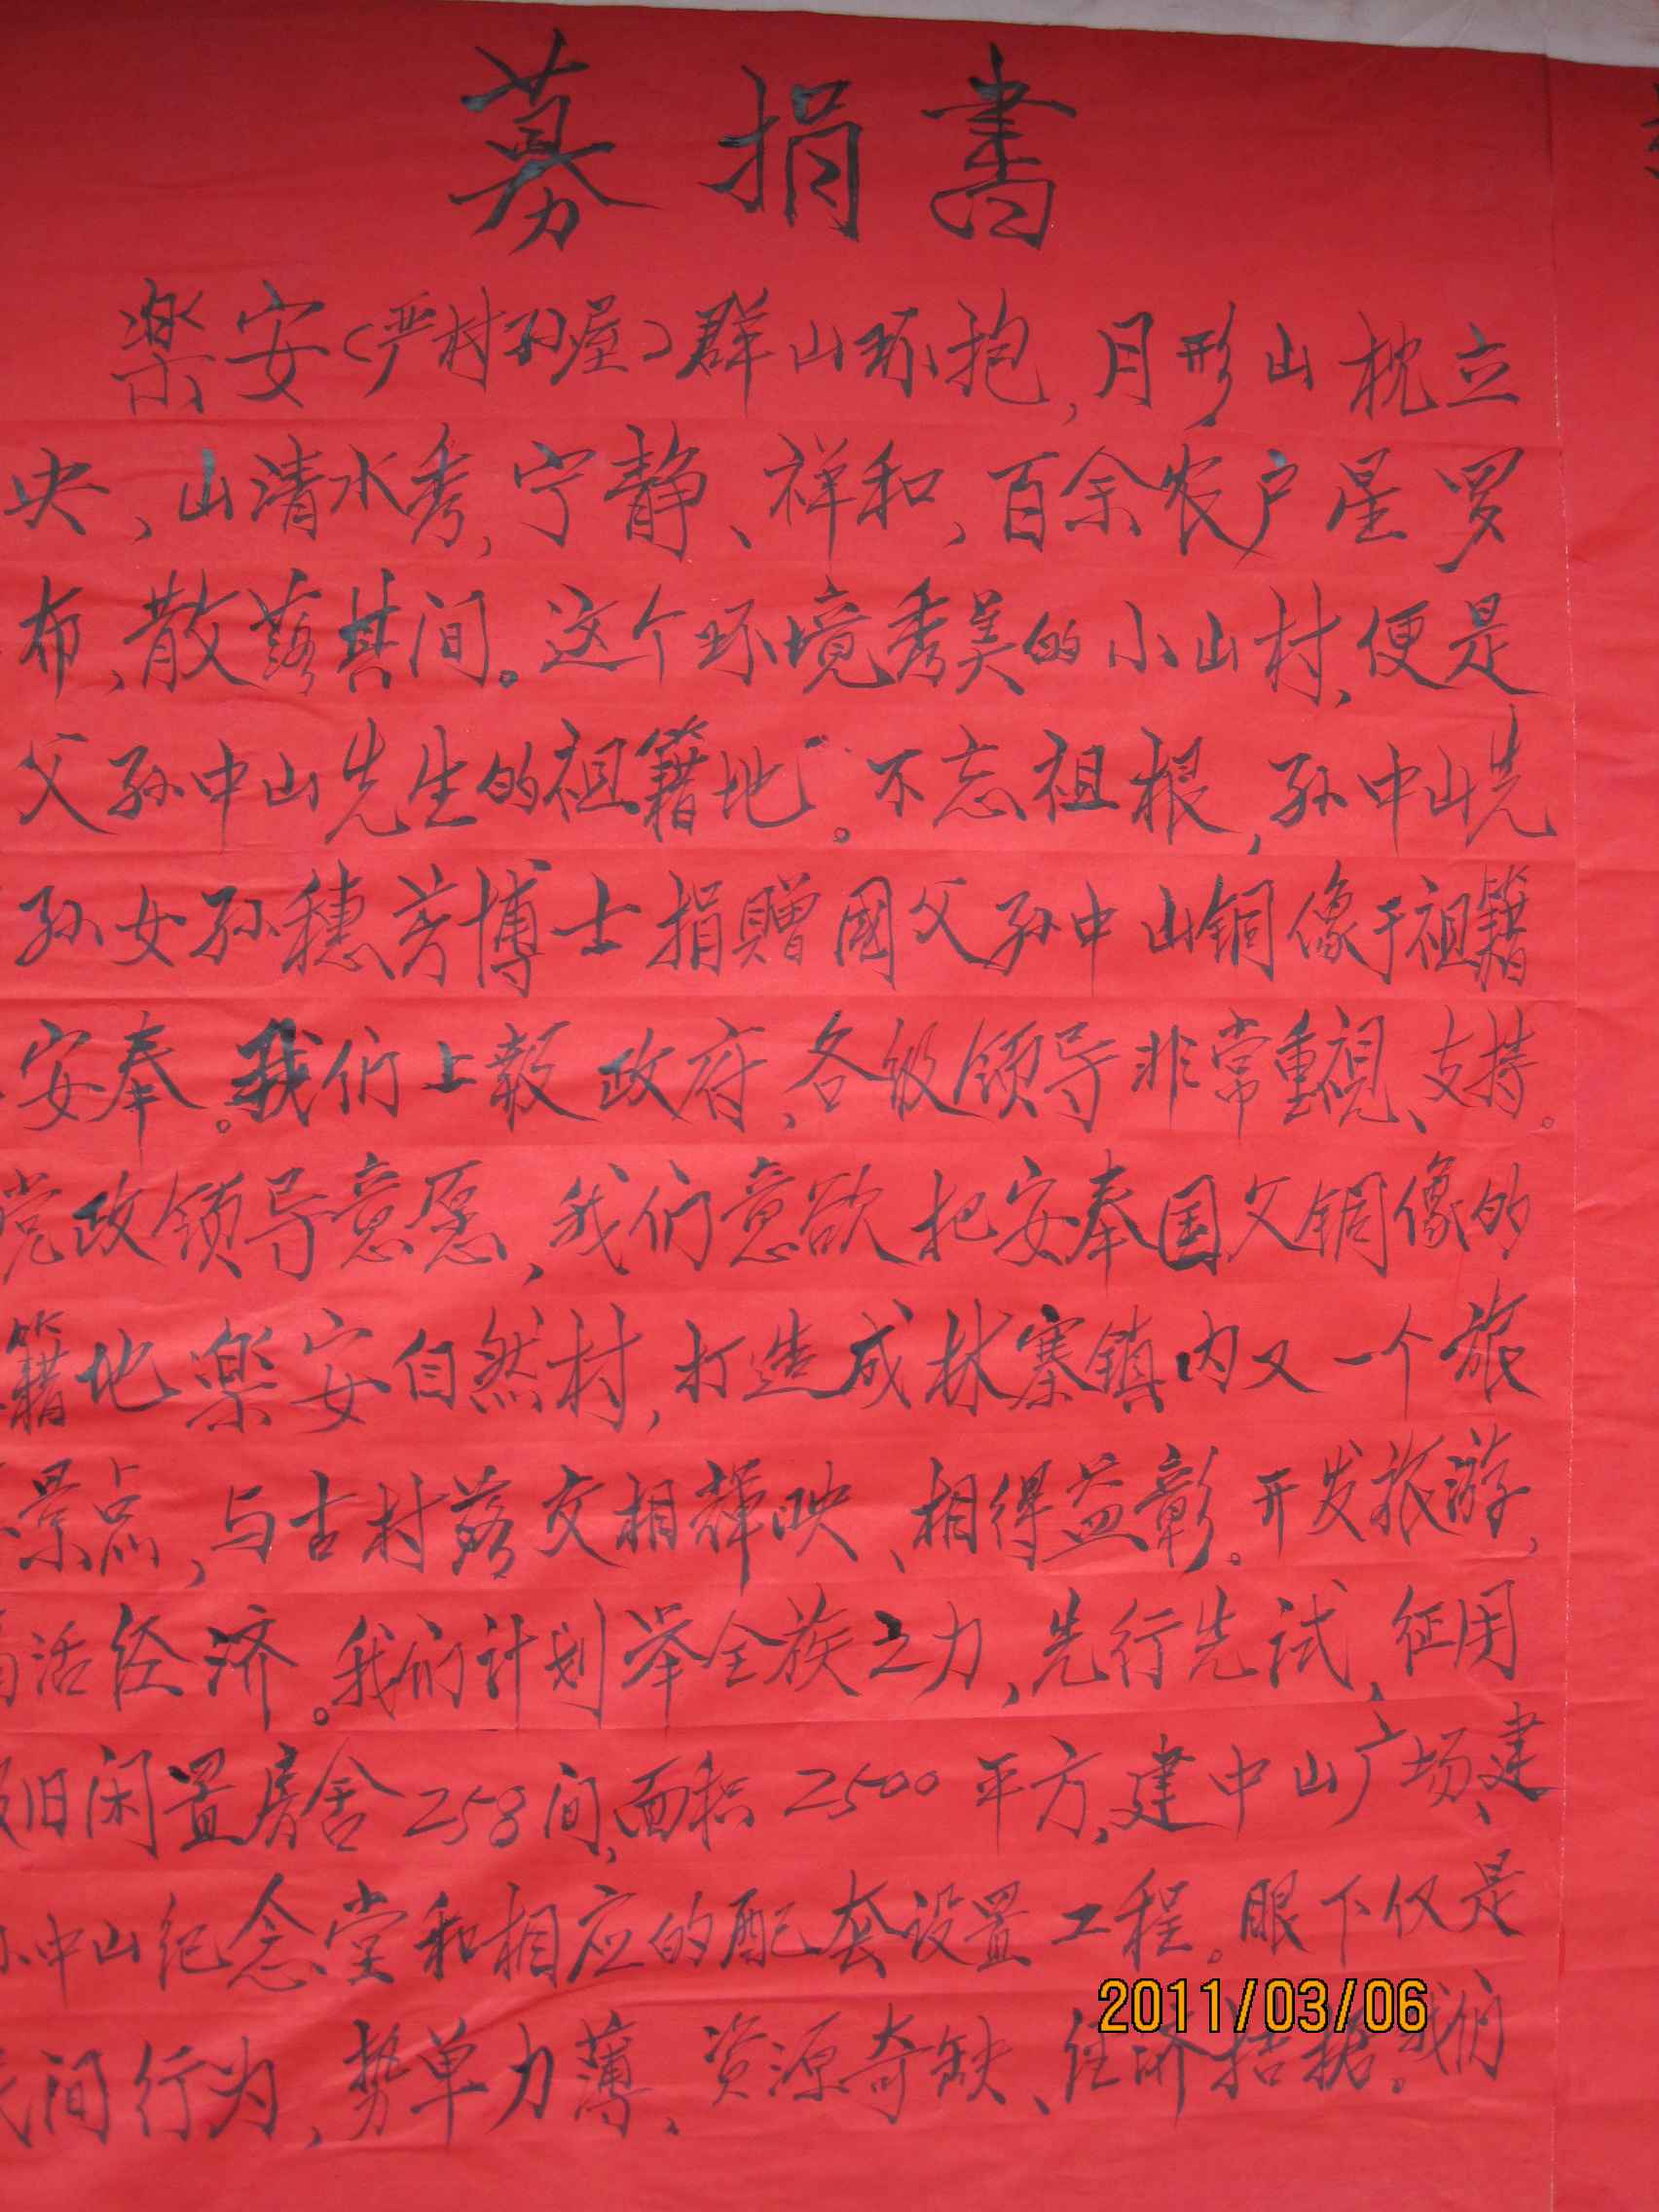 募捐書
樂安(严村孙屋)群山环抱,月形山枕立
央、山清水秀,宁静、祥和、百余农户星罗
布、散落其间。这个环境秀美的小山村,便是
父孙中山先生的祖籍地"。不忘祖根,孙中山先
孙女孙穗芳博士捐贈國父孙中山铜像于祖籍
安奉。我们上報政府、各级领导非常重視、支持。
党政领导意愿,我们意欲把安奉国父铜像的
籍地樂安自然村,打造成林寨镇内又一个旅
景点,与古村落交相輝映、相得益彰。开发旅游,
活经济。我们计划举全族之力,先行先试,征用
旧闲置房舍258间,面积2500平方,建中山广场、建
中山纪念堂和相应的配套设置工程。眼下仅是
间行为,势单力薄、资源奇缺、经济拮据。我们
2011/03/06